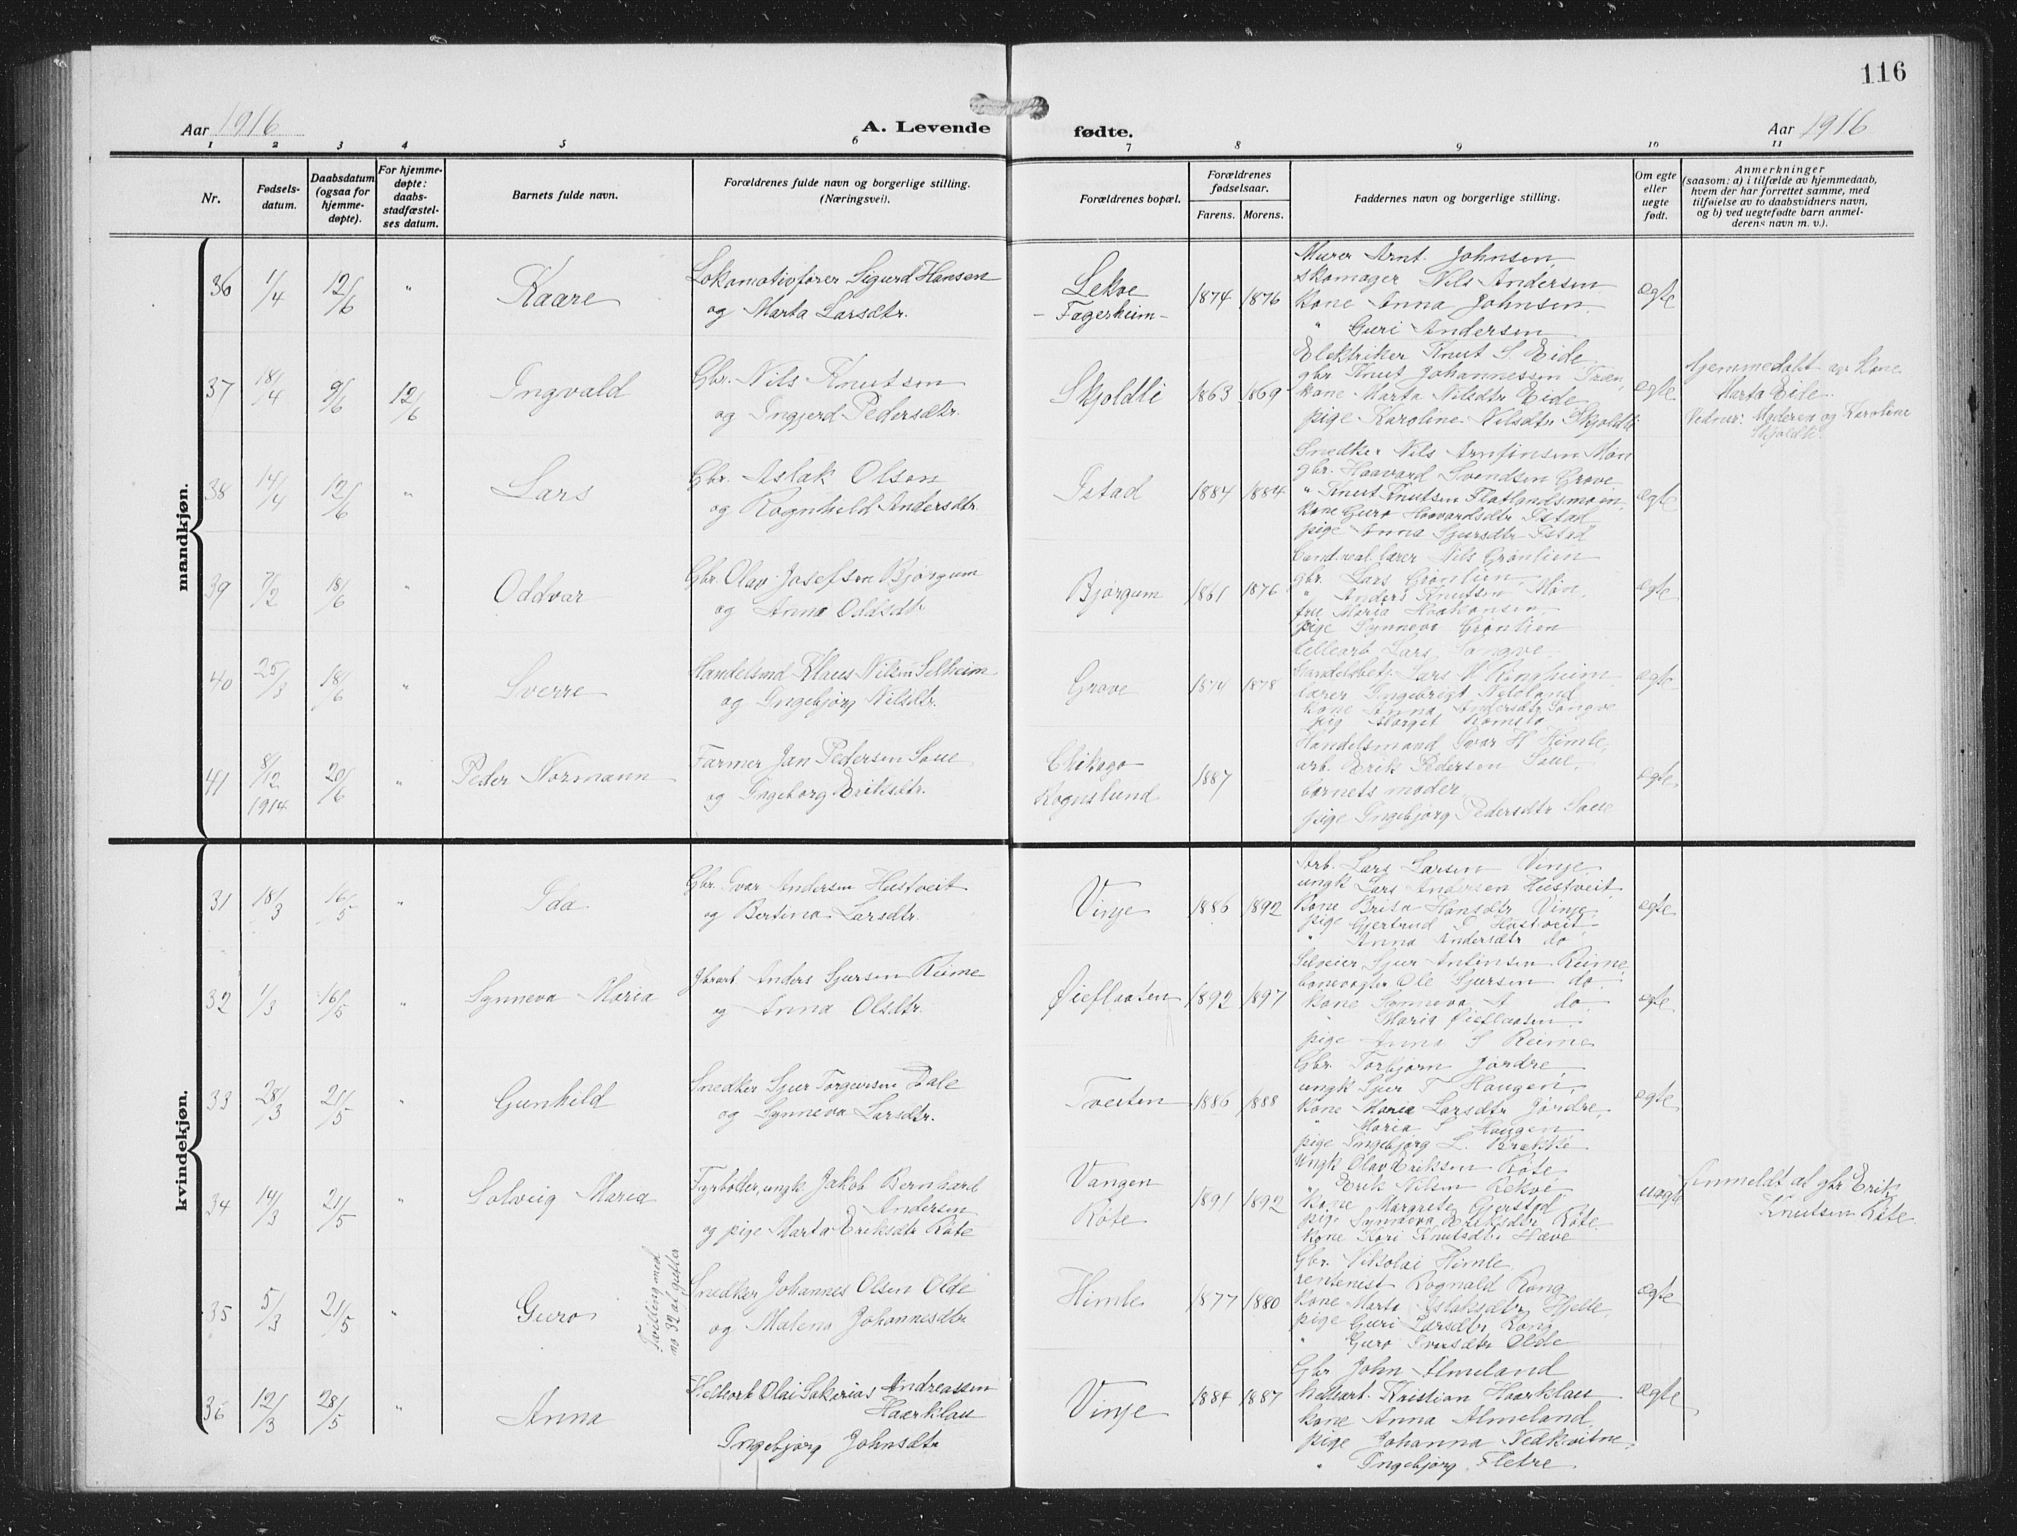 116
Aar 1916
A. Levende fødte.
Aar 1916
1 2 3 4 5 6 7 8 9 10 11
Nr.
Fødsels-
datum.
Daabsdatum
(ogsaa for
hjemme-
døpte).
For hjemme-
døpte:
daabs-
stadfæstel-
ses datum.
Barnets fulde navn.
Forældrenes fulde navn og borgerlige stilling.
(Næringsvei).
Forældrenes bopæl.
Forældrenes
fødselsaar.
Farens. Morens.
Faddernes navn og borgerlige stilling.
Om egte
eller
uegte
født.
Anmerkninger
(saasom: a) i tilfælde av hjemmedaab,
hvem der har forrettet samme, med
tilføielse av to daabsvidners navn,
og b) ved uegtefødte barn anmel-
derens navn m. v.).
mandkjøn.
36 1/4 12/6 " Kaare
Lokomotivfører Sigurd Hansen
og Marta Larsdtr.
Lekve
- Fagerheim -
1874 1876
Murer Arnt Johnsen
skomager Nils Andersen
kone Anna Johnsen
" Guri Andersen
egte
37 18/4 9/6 12/6 Ingvald
Gbr. Nils Knutsen
og Ingjerd Pedersdtr.
Skjoldli
1863 1869
Elektriker Knut S. Eide
gbr Knut Johannessen Træn
kone Marta Nilsdtr Eide
pige Karoline Nilsdtr Skjoldli
egte
Hjemmedøbt av kone
Marta Eide.
Vidner: Moderen og Karoline
Skjoldli.
38 14/4 12/6 " Lars
Gbr. Aslak Olsen
og Ragnhild Andersdtr.
Istad
1884 1884
Snedker Nils Arnfinsen Møn
gbr. Haavard Svendsen Grove
" Knut Knutsen Flatlandsmoen
kone Guro Haavardsdtr Istad
pige Anna Sjursdtr Istad
egte
39 7/2 18/6 " Oddvar
Gbr. Olav Josefsen Bjørgum
og Anna Oldsdtr
Bjørgum
1861 1876
Cand. real. lærer Nils Grønlien
gbr. Lars Grønlien
" Anders Knutsen Møn
fru Maria Haakonsen
pige Synneva Grønlien
egte
40 25/3 18/6 " Sverre
Handelsmd Klaus Nilsen Selheim
og Ingebjørg Nilsdtr.
Grove
1874 1878
Lars Songve
Handelsbetj. Lars N Ringheim
lærer Ingebrigt
kone Anna Andersdtr Songve
Margit
egte
41 8/12 1914 20/6 " Peder Normann
Farmer Jan Pedersen Saue
og Ingeborg Eriksdtr.
Chikago
Rognslund
1887
Handelsmand Ivar H Himle
arb. Erik Pedersen Saue
barnets moder
pige Ingebjørg Pedersdtr Saue
egte
kvindekjøn.
31 18/3 16/5 " Ida
Gbr. Ivar Andersen Hustveit
og Bertina Larsdtr.
Vinje
1886 1892
Arb. Lars Larsen Vinje
ungk Lars Andersen Hustveit
Kone Brita Hansdtr Vinje
pige Gjertrud I Hustveit
" Anna Andersdtr do
egte
32 1/3 16/5 " Synneva Maria
Jbarb Anders Sjursen Reime
og Anna Olsdtr.
Øieflaaten
1892 1897
Sjur Antonsen Reime
banevogter Ole Sjursen do
kone Synneva A do
" Maria Øieflaaten
pige Anna S Reime
egte
33 28/3 21/5 " Gunhild
Snedker Sjur Torgeirsen Dale
og Synneva Larsdtr.
Tveiten
1886 1888
Gbr. Torbjørn Jordre
ungk Sjur T Haugen
kone Maria Larsdtr Jordre
" Maria S Haugen
pige Ingebjørg L. Brække
egte
34 14/3 21/5 " Solveig Maria
Fyrbøter, ungk. Jakob Bernhard
Andersen
og pige Marta Eriksdtr Røte
Vangen
Røte
1891 1892
Ungk Olav Eriksen Røte
Erik Nilsen Rekve
kone Margrete Gjerstad
pige Synneva Eriksdtr Røte
kone Kari Knutsdtr Hæve
uegte
Anmeldt af gbr Erik
Knutsen Røte
35 5/3 21/5 " Guro
Tvilling med
no 32 af gutter
Snedker Johannes Olsen Olde
og Malena Johannesdtr
Himle
1877 1880
Gbr. Nikolai Himle
rentenist Rognald Rong
kone Marta Aslaksdtr Hjelle
pige Guri Larsdtr Rong
" Guro Ivarsdtr Olde
egte
36 12/3 28/5 " Anna
Helleark Olai Sakarias Andreassen
Haarklau
Ingebjørg Johnsdtr
Vinje
1884 1887
Gbr John Almeland
hellearb. Kristian Haarklau
kone Anna Almeland
pige Johanna Nedkvitne
" Ingebjørg Fletre
egte